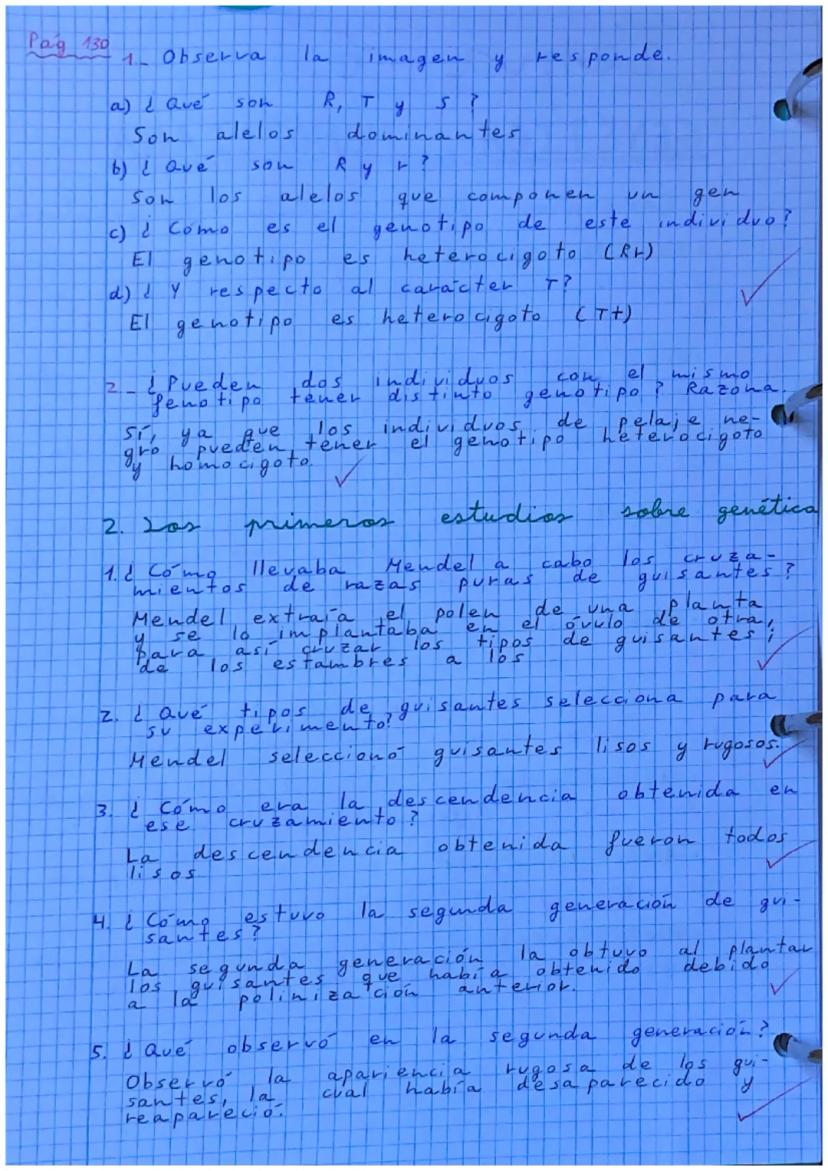 Pág 130
1_ Observa la imagen y responde.
a) ¿Qué son R, T y S?
Son alelos dominantes
b) ¿Qué son R y r?
Son los alelos que componen un gen
c) ¿Cómo es el genotipo de este individuo?
El genotipo es heterocigoto (Rr)
d) ¿Y respecto al carácter T?
El genotipo es heterocigoto (Tt)
2_ ¿Pueden dos individuos con el mismo
fenotipo tener distinto genotipo? Razona.
Sí, ya que los individuos de pelaje ne-
gro pueden tener el genotipo heterocigoto
y homocigoto.
2. Los primeros estudios sobre genética
1. ¿Cómo llevaba Mendel a cabo los cruza-
mientos de razas puras de guisantes?
Mendel extraía el polen de una planta
y se lo implantaba en el óvulo de otra,
para así cruzar los tipos de guisantes;
de los estambres a los
2. ¿Qué tipos de guisantes selecciona para
su experimento?
Mendel seleccionó guisantes lisos y rugosos.
3. ¿Cómo era la descendencia obtenida en
ese cruzamiento?
La descendencia obtenida fueron todos
lisos
4. ¿Cómo estuvo la segunda generación de gui-
santes?
La segunda generación la obtuvo al plantar
los guisantes que había obtenido debido
a la polinización anterior.
5. ¿Qué observó en la segunda generación?
Observó la apariencia rugosa de los gui-
santes, la cual había desaparecido y
reapareció.